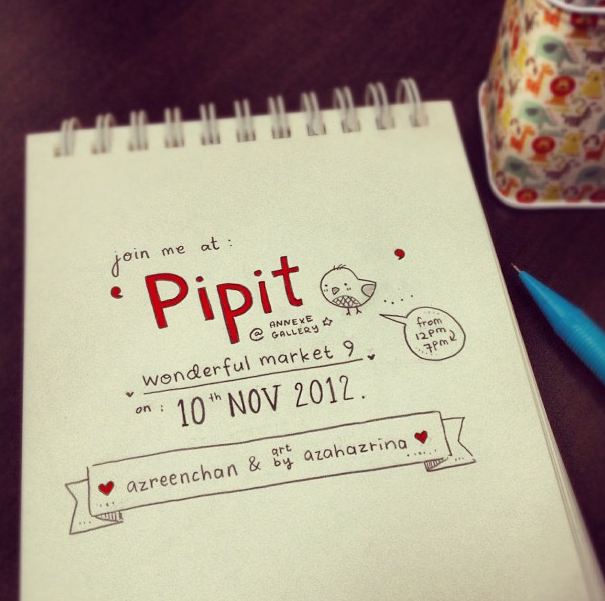 join me at :
‘Pipit’
@ ANNEXE
GALLERY
from
12pm
7pm
wonderful market 9
on : 10th NOV 2012.
azreenchan & art by azahazrina